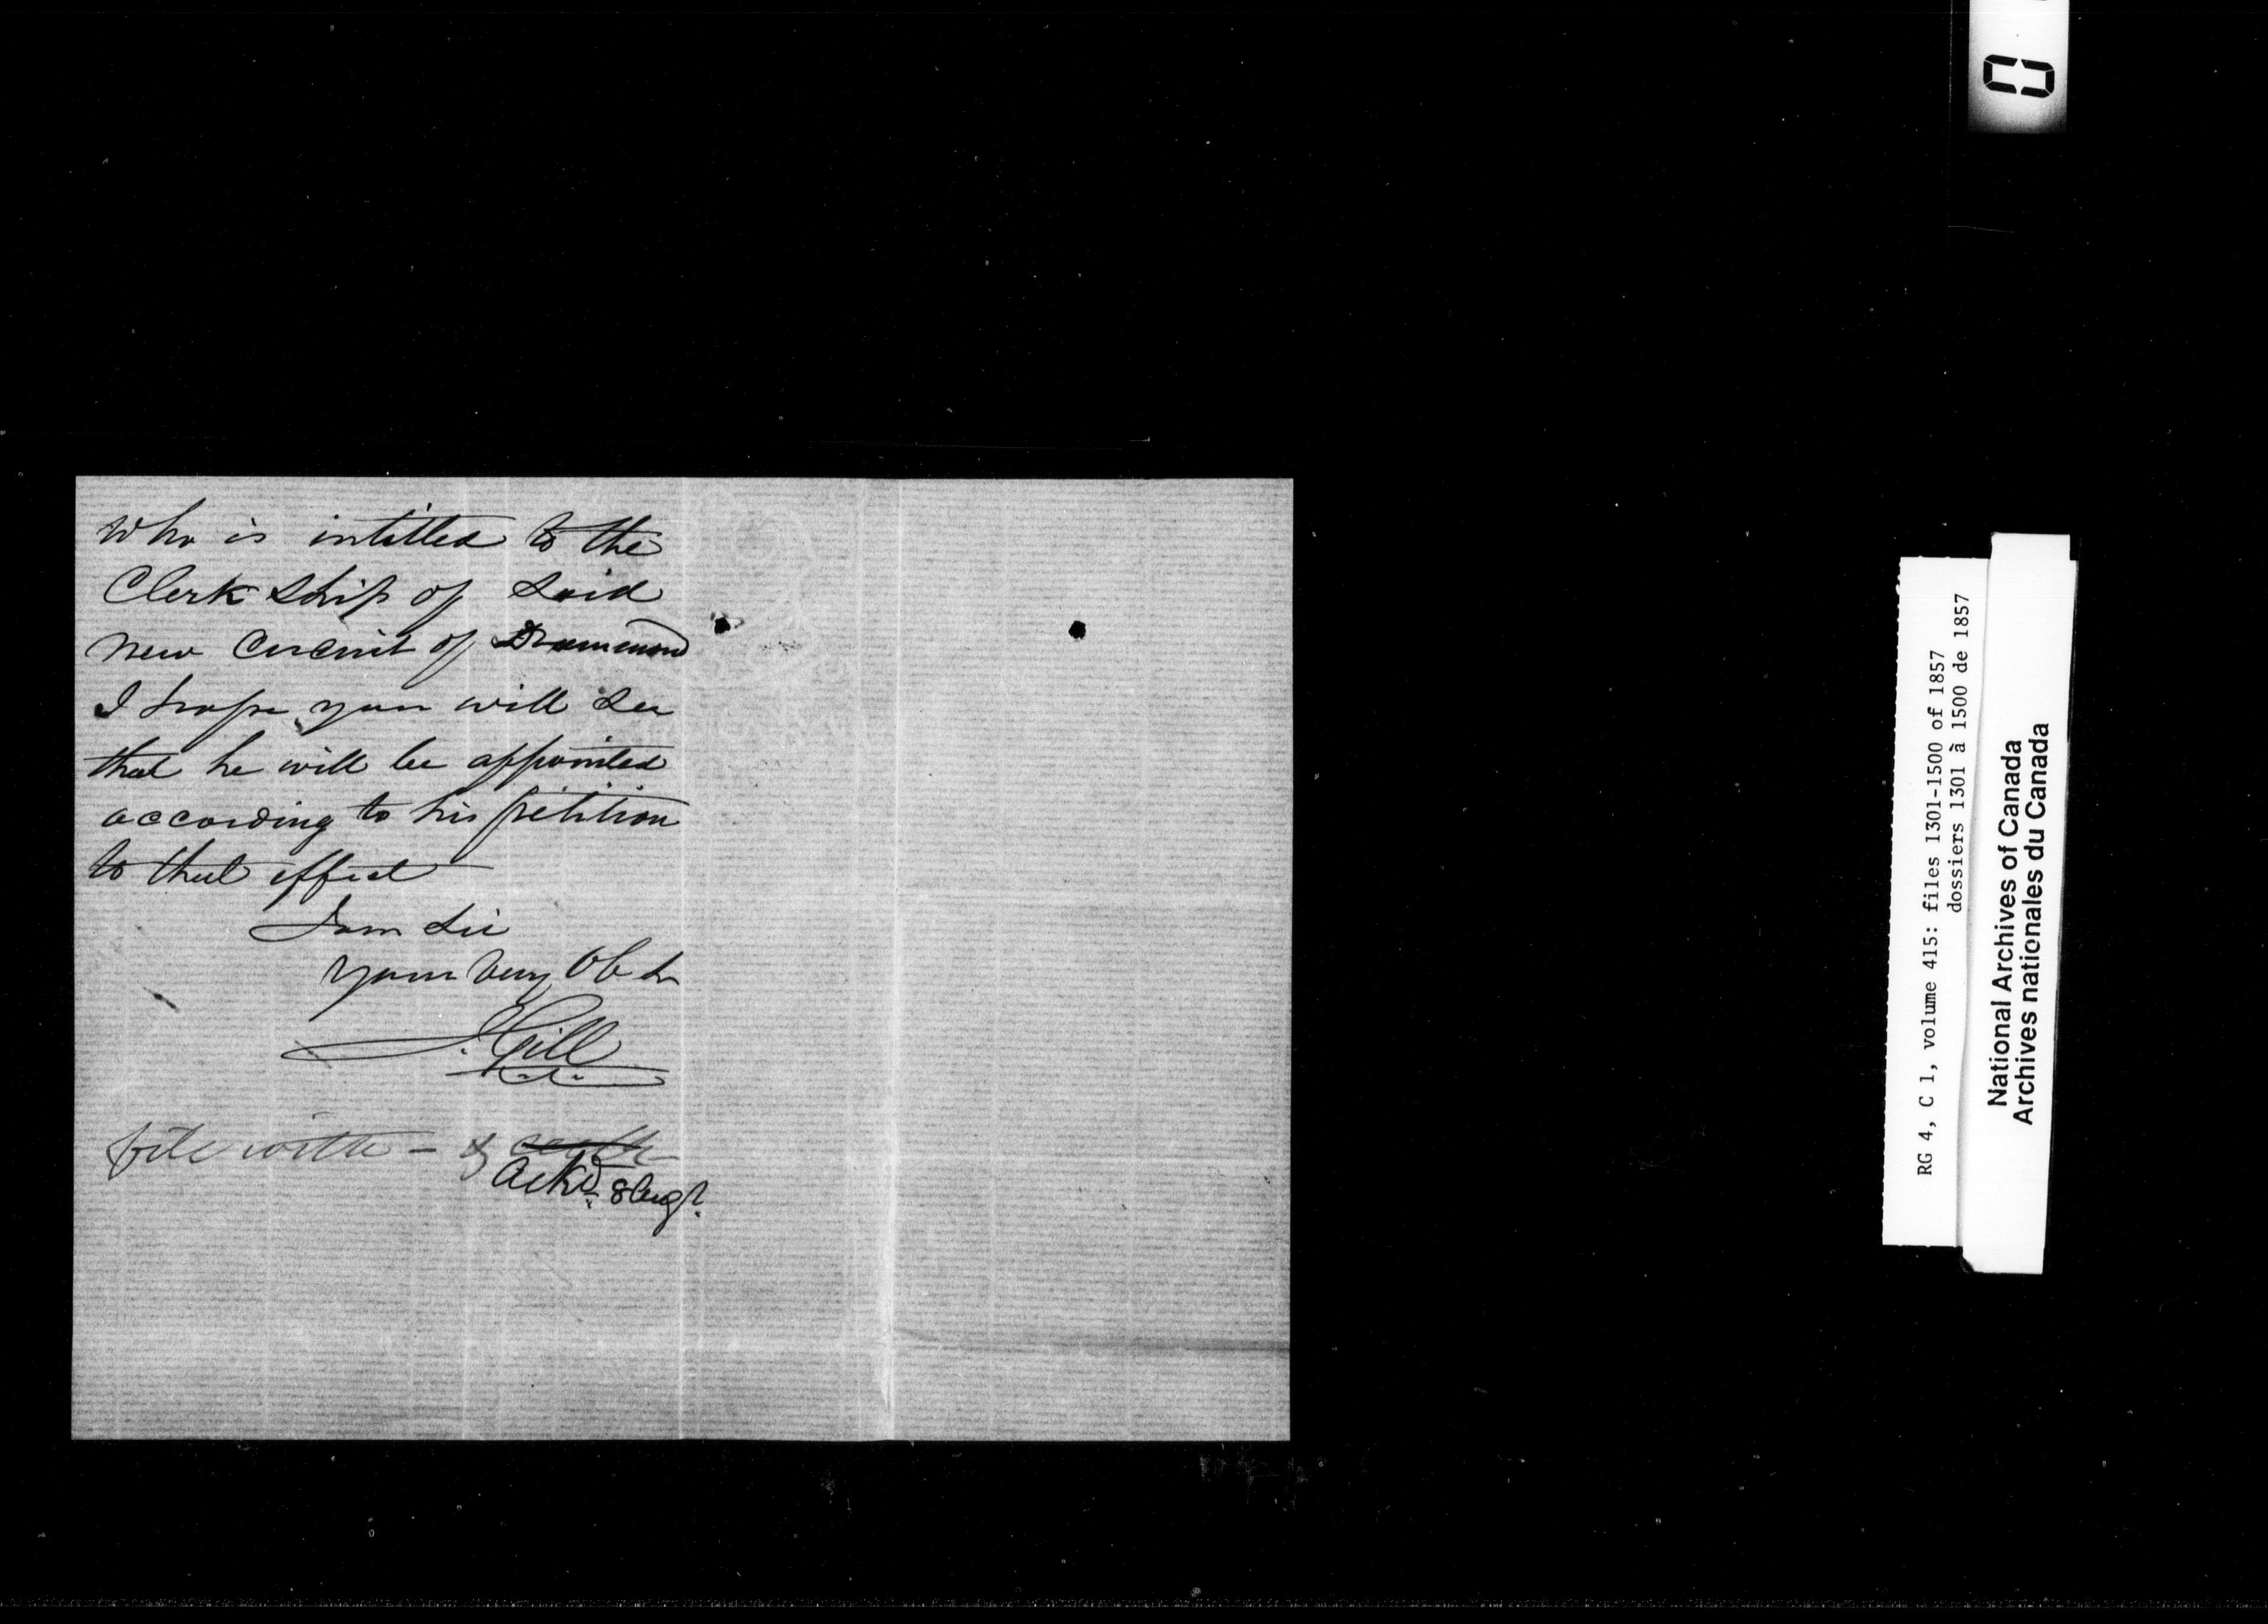 who is intitled to the
Clerk ship of said
new Circuit of Drummond
I hope you will see
that he will be appointed
according to his petition
to that effect
I am Sir
your very Ob Sr
J. Gill
file with - &
Ackd. 8 Augt.
RG 4, C 1, volume 415: files 1301-1500 of 1857
dossiers 1301 à 1500 de 1857
National Archives of Canada
Archives nationales du Canada